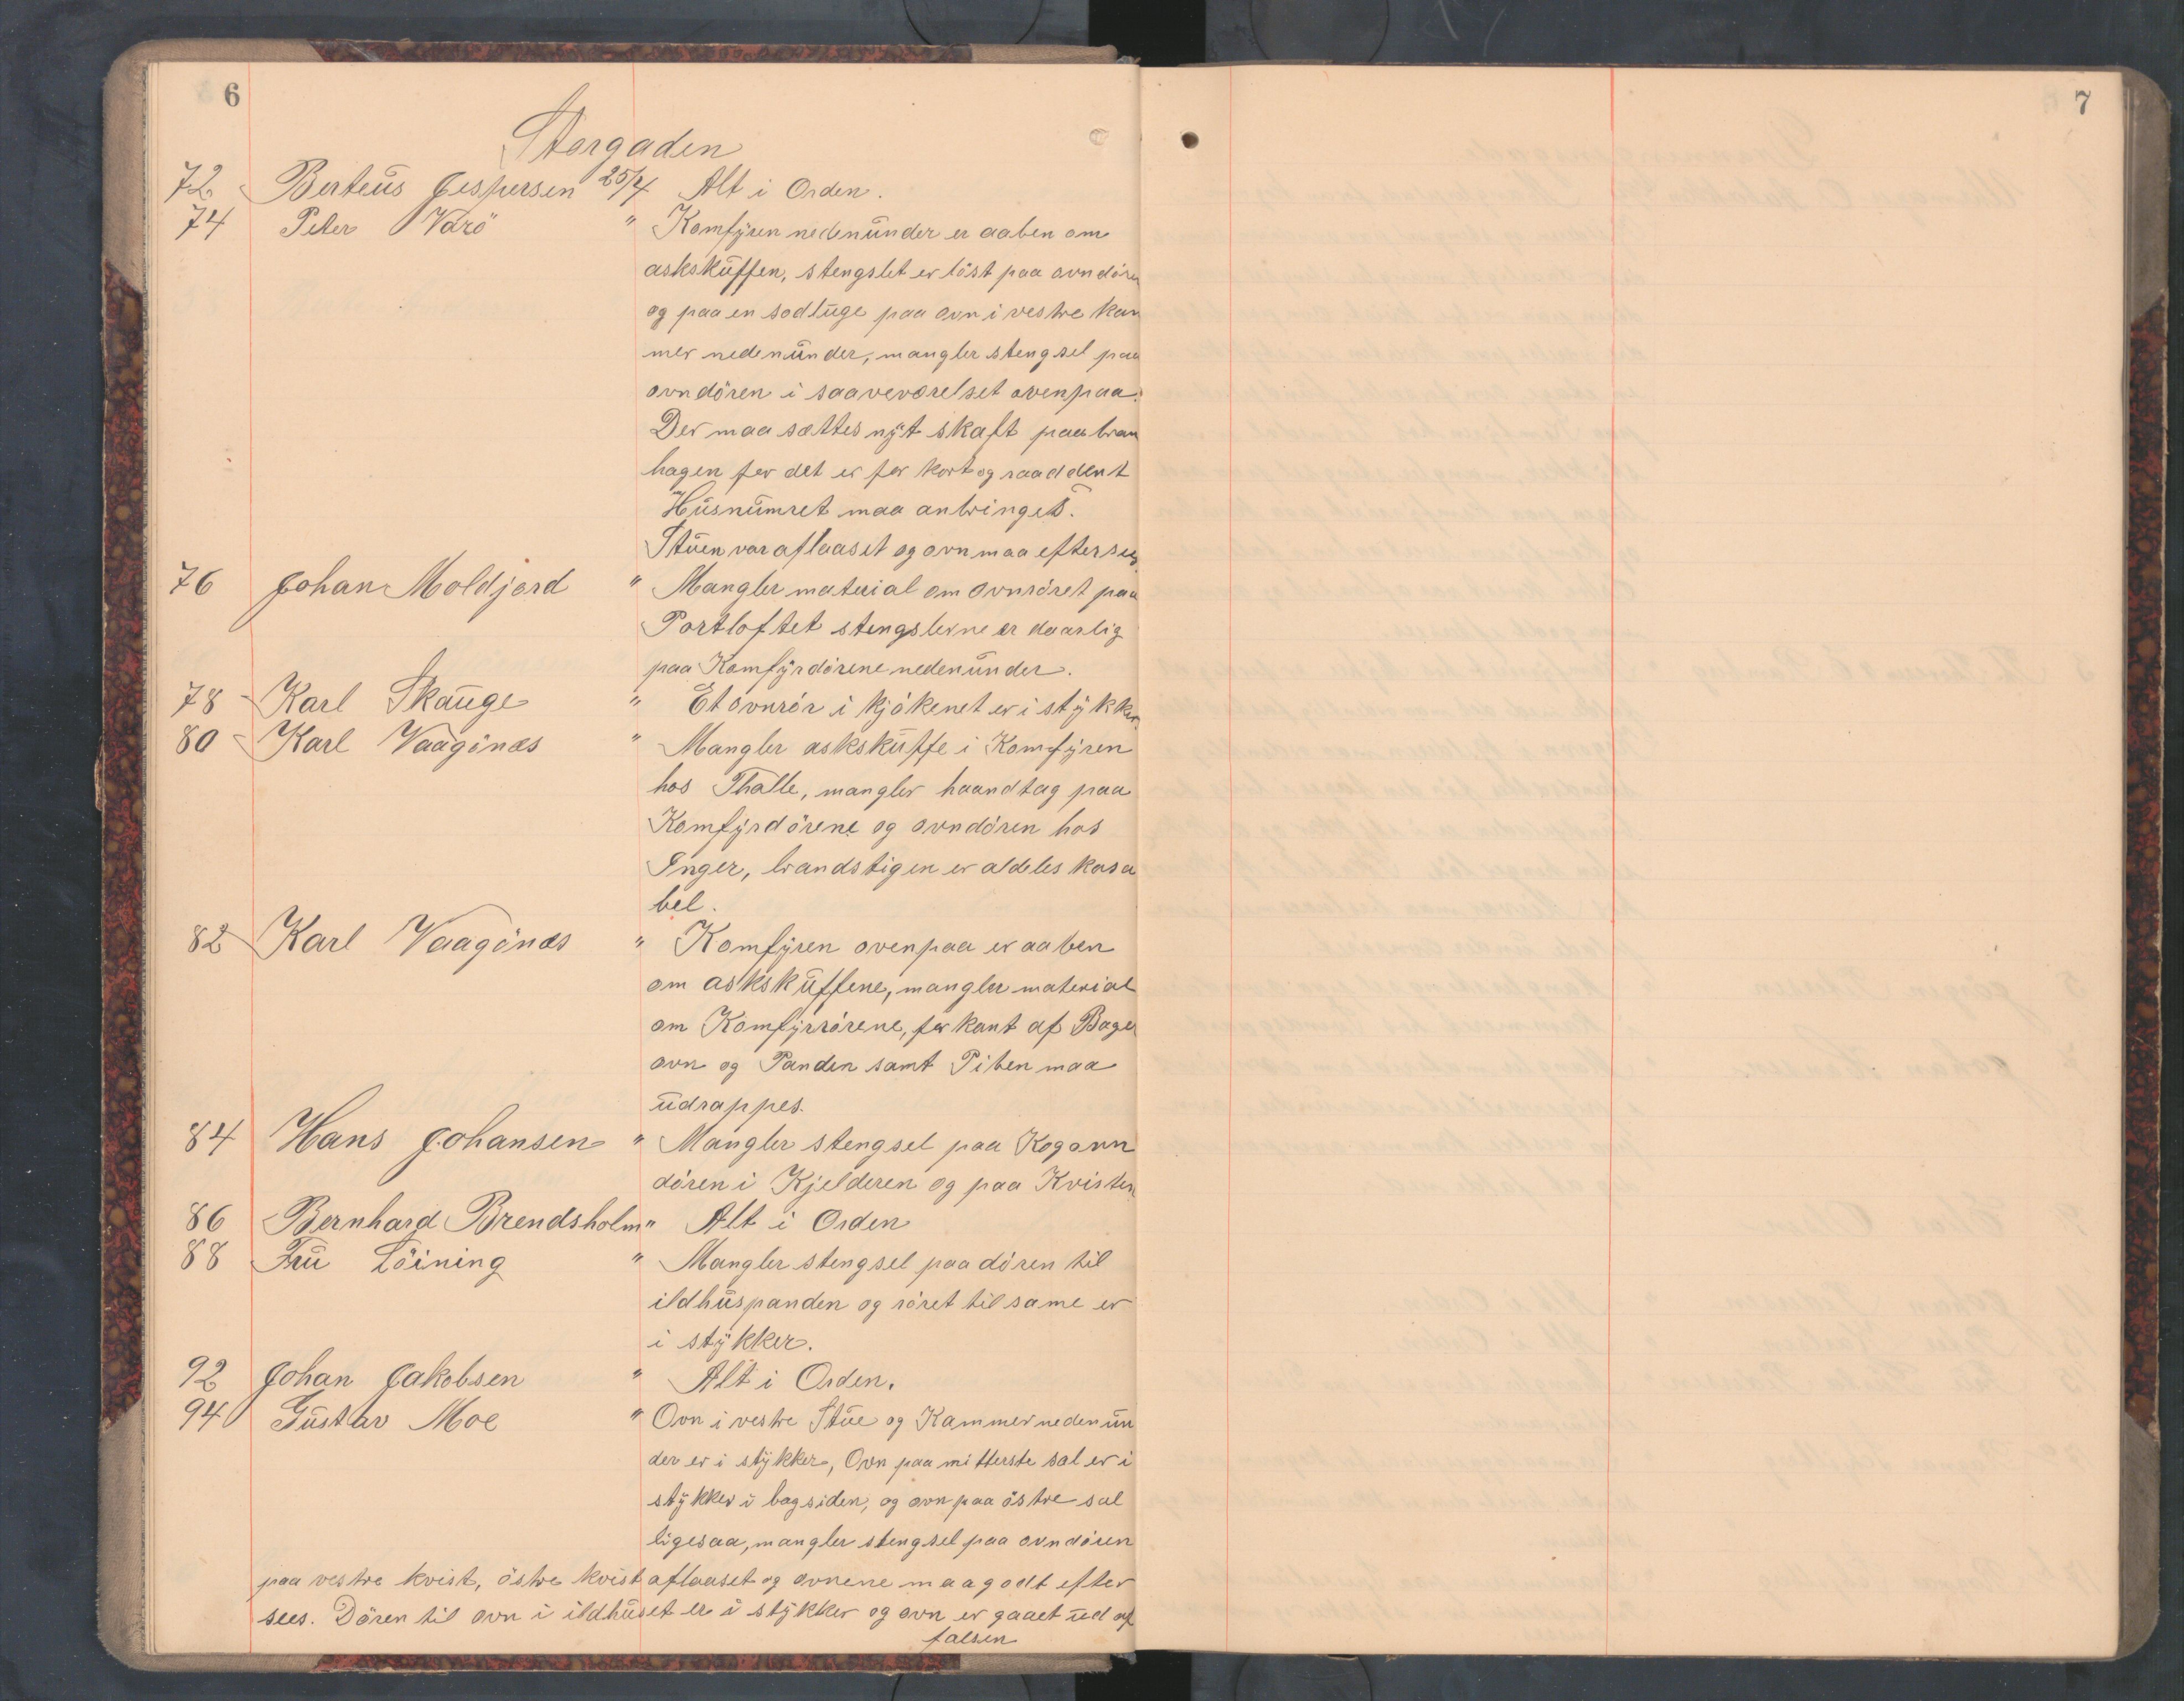 6
7
Storgaden
72 Berteus Jespersen 25/4 Alt i Orden.
74 Peter Varö " Komfyren nedenunder er aaben om
askskuffen, stengslet er löst paa ovndören
og paa en sodluge paa ovn i vestre kam
mer nedenunder, mangler stengsel paa
ovndören i saaveværelset ovenpaa.
Der maa sættes nyt skaft paa bran
hagen for det er for kort og raaddent
Husnumret maa anbringes.
Stuen var aflaaset og ovn maa eftersees
76 Johan Moldjord " Mangler material om ovnröret paa
Portloftet stengslerne er daarlig
paa Komfyrdörene nedenunder.
78 Karl Skauge " Et ovnrör i kjökenet er i stykker
80 Karl Vaagönæs " Mangler askskuffe i Komfyren
hos Thalle, mangler haandtag paa
Komfyrdörene og ovndören hos
Inger, brandstigen er aldeles kasa
bel.
82 Karl Vaagönæs " Komfyren ovenpaa er aaben
om askskuffene, mangler material
om Komfyrrörene, forkant af Bager
ovn og Panden samt Piben maa
udrappes.
84 Hans Johansen " Mangler stengsel paa Kogovn
dören i Kjelderen og paa Kvisten
86 Bernhard Brendsholm " Alt i Orden
88 Fru Löining " Mangler stengsel paa dören til
ildhuspanden og röret til same er
i stykker.
92 Johan Jakobsen " Alt i Orden.
94 Gustav Moe " Ovn i vestre Stue og Kammer nedenun
der er i stykker, Ovn paa mitterste sal er i
stykker i bagsiden, og ovn paa östre sal
ligesaa, mangler stengsel paa ovndören
paa vestre kvist, östre kvist aflaaset og ovnene maa godt efter
sees. Dören til ovn i ildhuset er i stykker og ovn er gaaet ud af
falsen